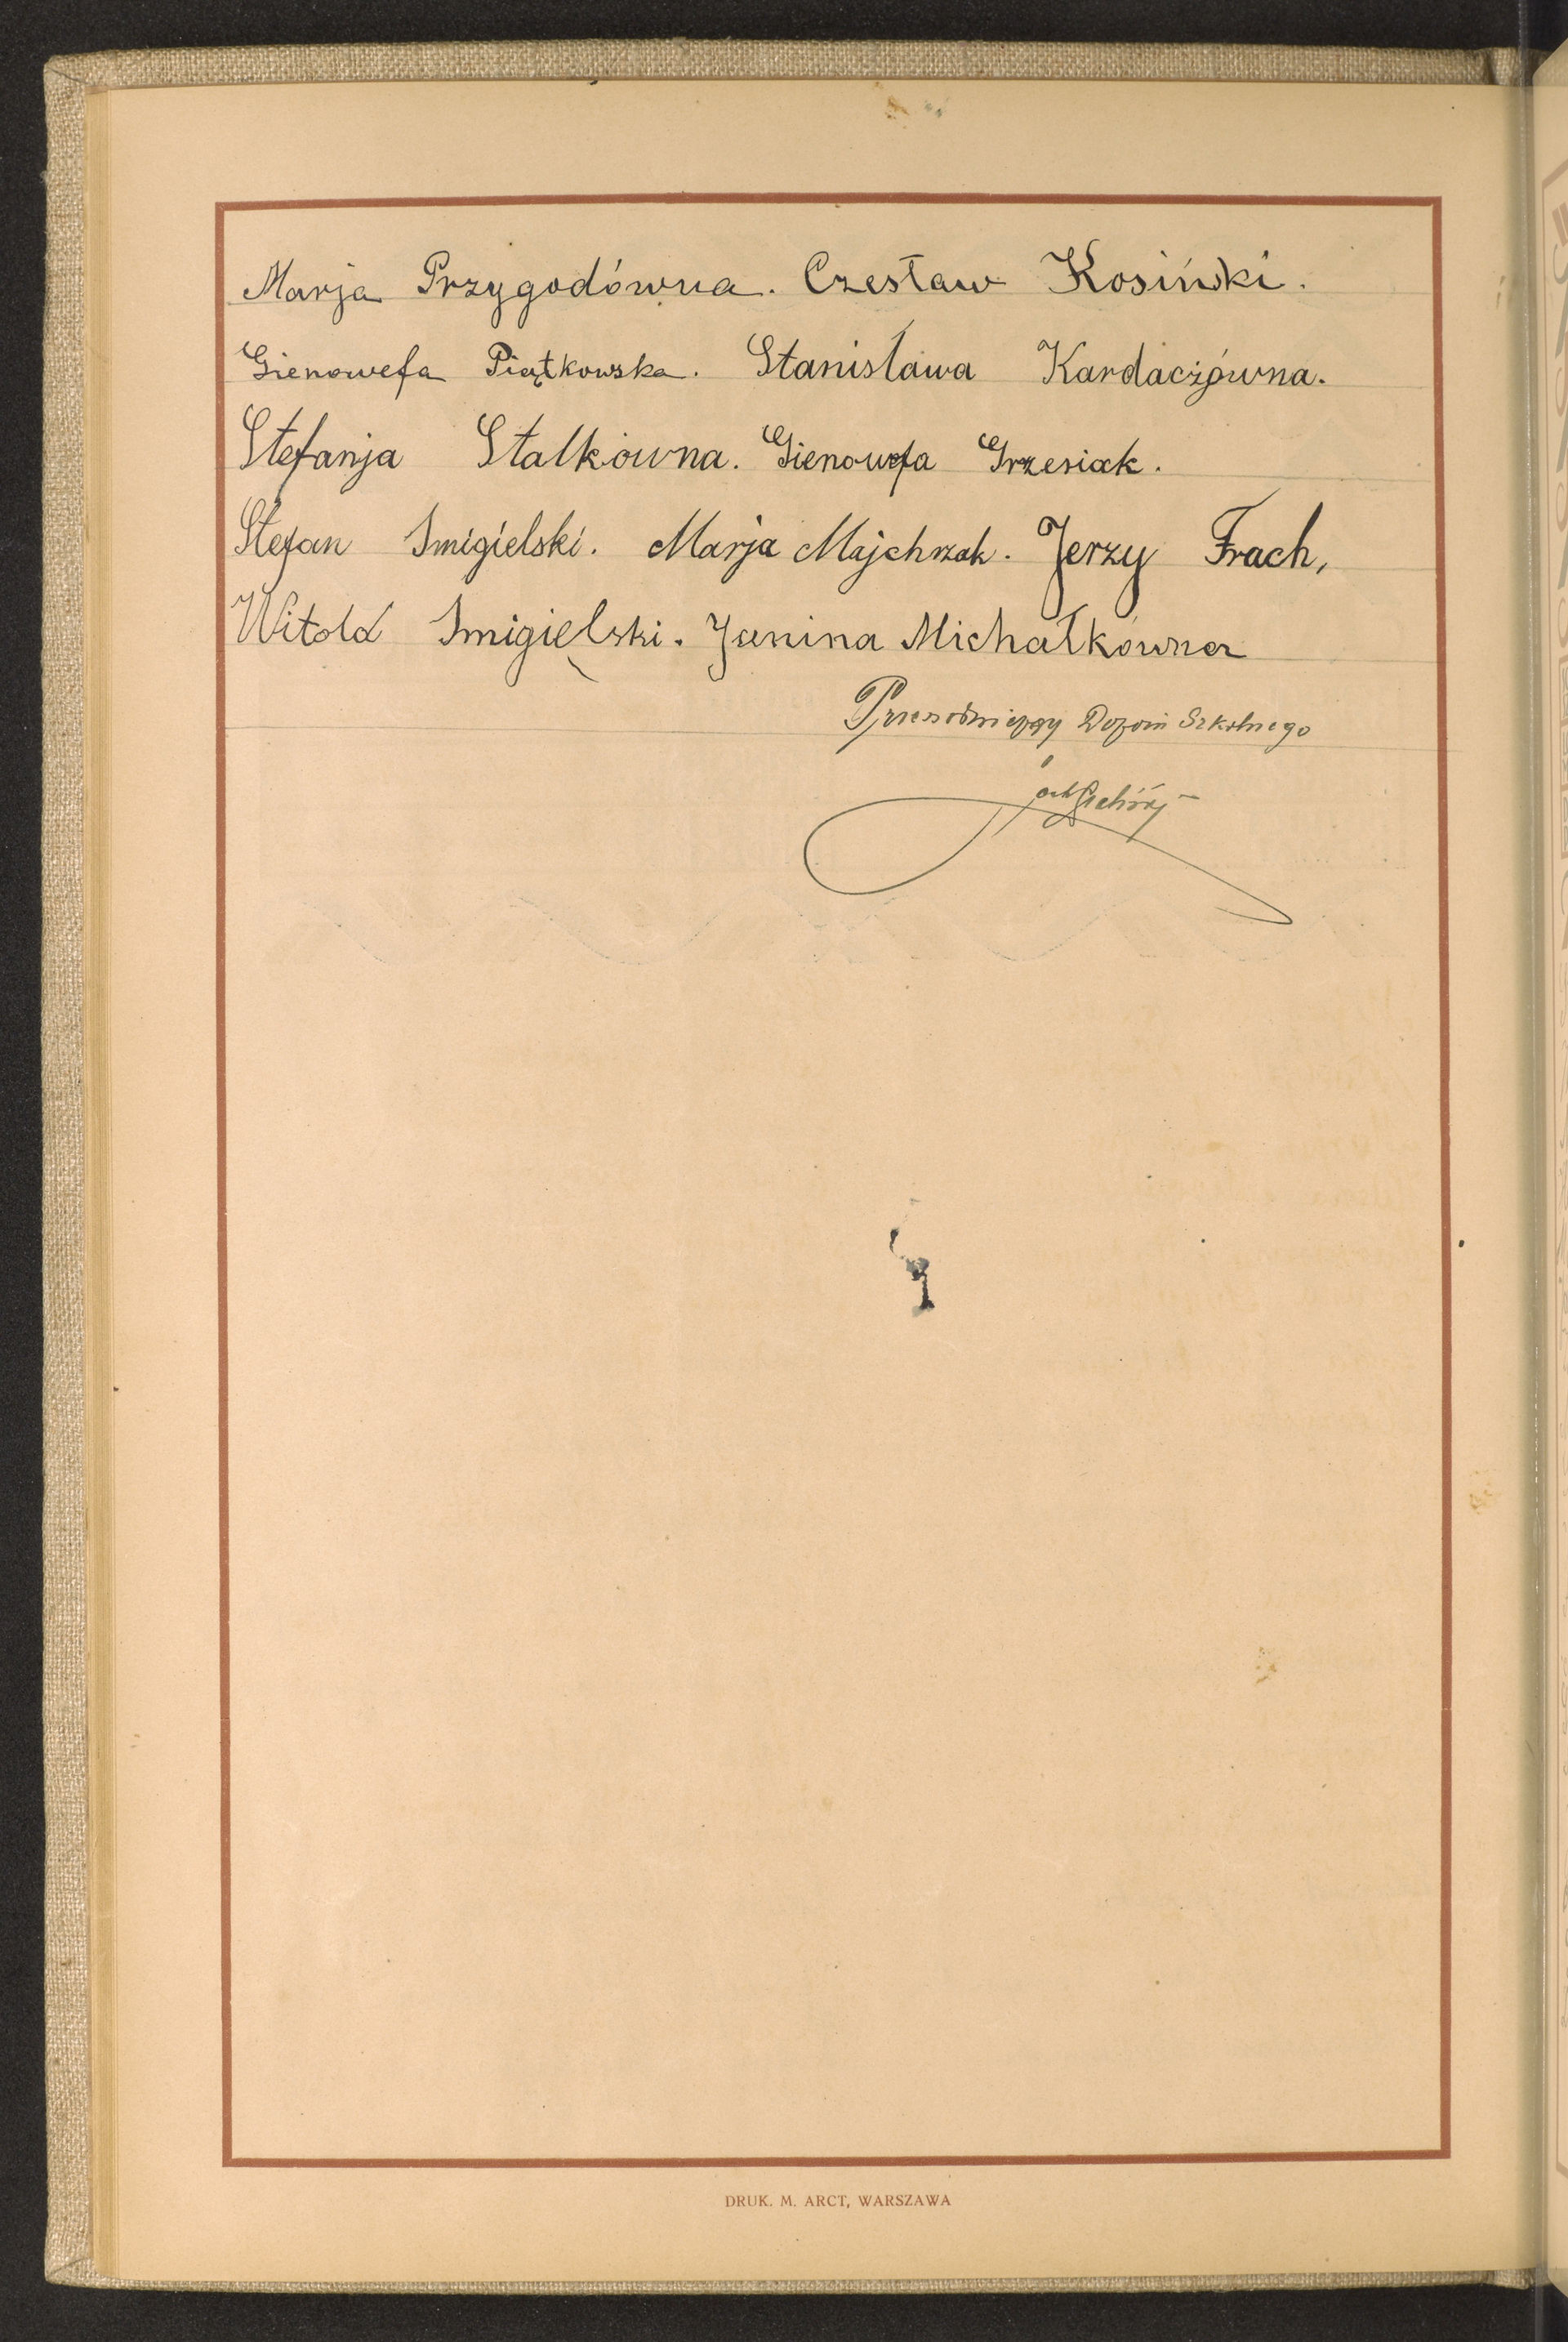 Marja Przygodówna. Czesław Kosiński.
Gienowefa Piątkowska. Stanisława Kardaczówna.
Stefanja Stalkówna. Gienowefa Grzesiak.
Stefan Smigielski. Marja Majchrzak. Jerzy Frach,
Witold Smigielski. Janina Michałkówna
Przewodniczący Dozoru Szkolnego
DRUK. M. ARCT, WARSZAWA